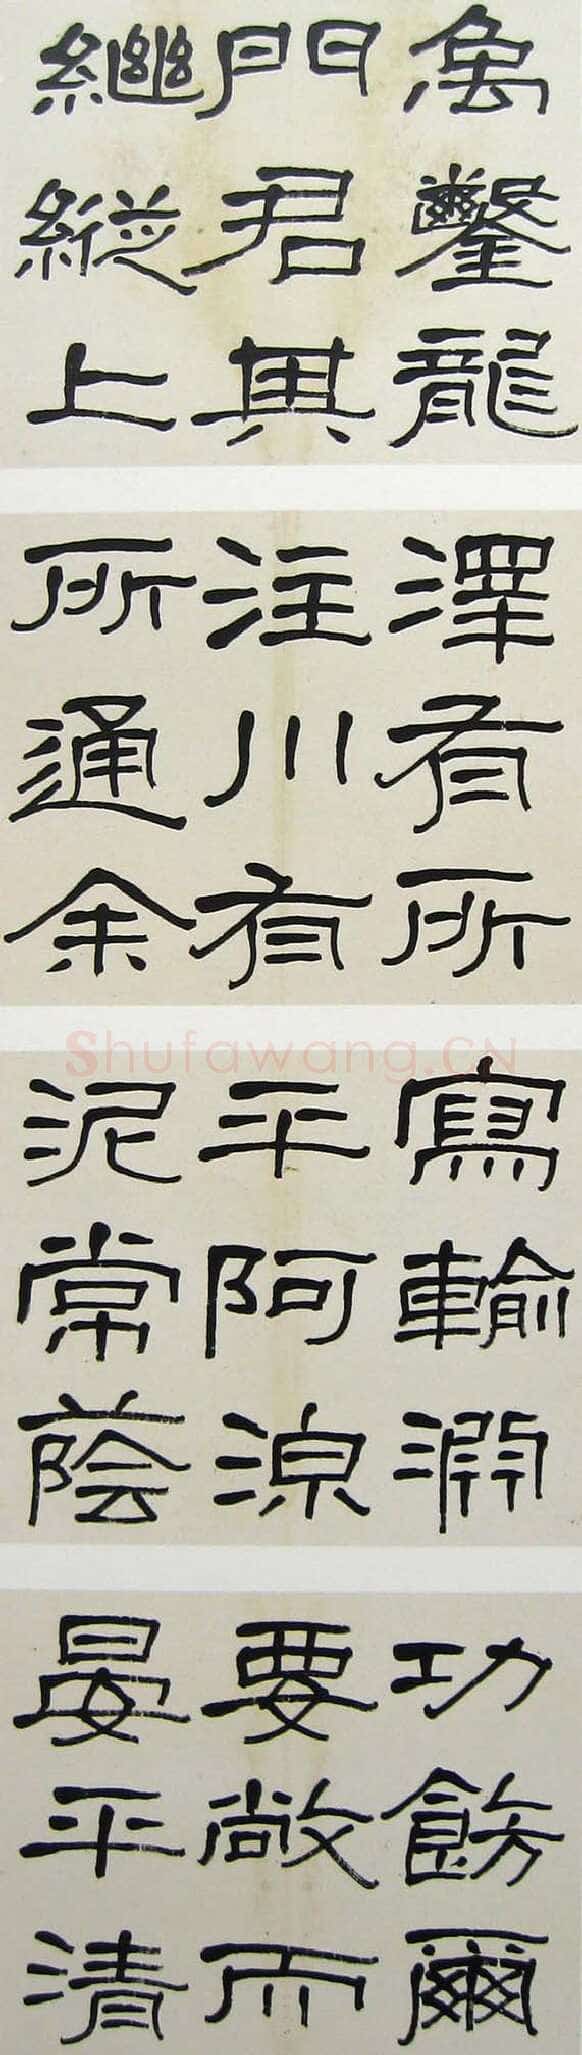 禹鑿龍
門君其
繼縱上
澤有所
注川有
所通余
寫輸淵
平阿湶
泥常蔭
功飭爾
要敞而
晏平清
Shufawang.CN